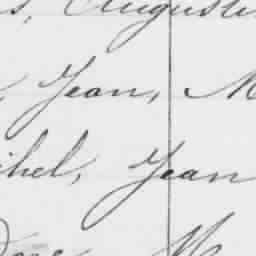 s, Augusti
Jean, M
ihel, Jean
M